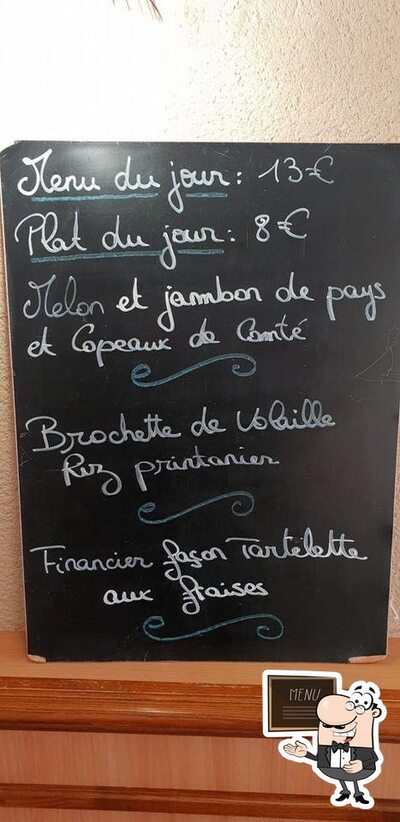 Menu du jour : 13€
Plat du jour : 8€
Melon et jambon de pays
et Copeaux de Comté
Brochette de Volaille
Riz printanier
Financier façon Tartelette
aux fraises
MENU